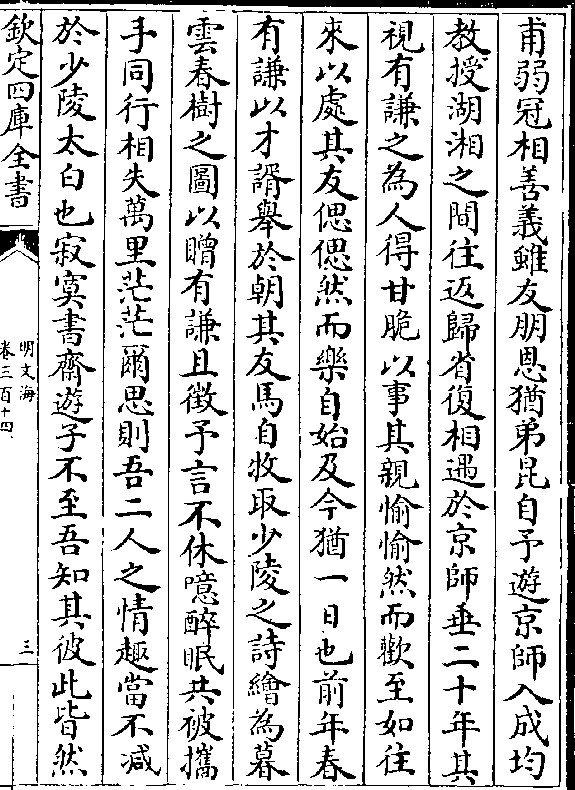 甫弱冠相善義雖友朋恩猶弟昆自予遊京師入成均
教授湖湘之間往返歸省復相遇於京師垂二十年其
視有謙之為人得甘脆以事其親愉愉然而歡至如往
來以處其友偲偲然而樂自始及今猶一日也前年春
有謙以才諝舉於朝其友馬自牧取少陵之詩繪為暮
雲春樹之圖以贈有謙且徵予言不休噫醉眠共被攜
手同行相失萬里茫茫爾思則吾二人之情趣當不减
於少陵太白也寂寞書齋遊子不至吾知其彼此皆然
欽定四庫全書
明文海
卷三百十四
三